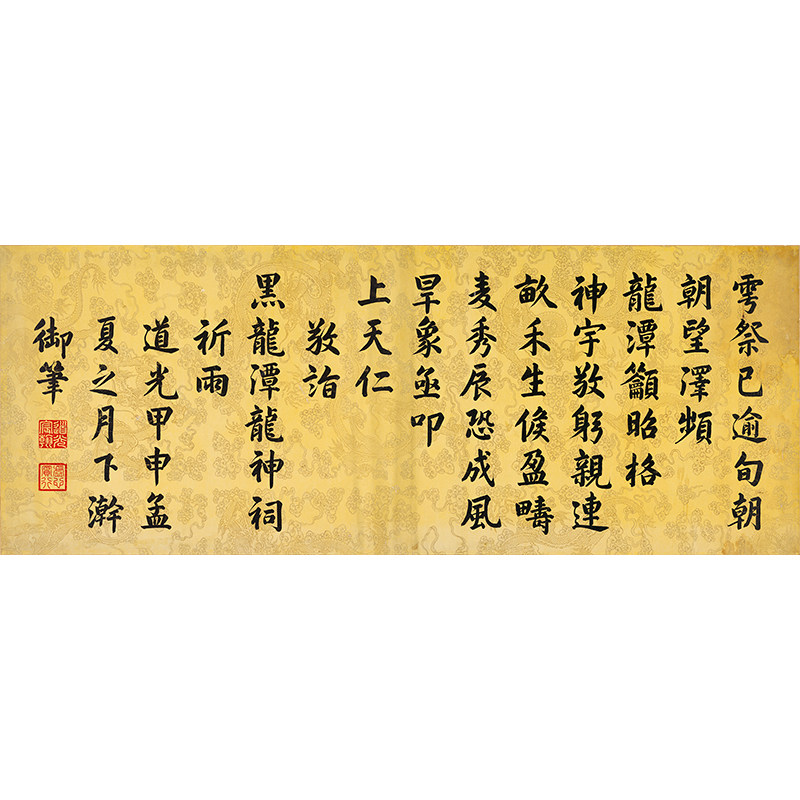 雩祭已逾旬朝
朝望澤頻
龍潭籲昭格
神宇敬躬親連
畝禾生候盈疇
麦秀辰恐成風
旱象亟叩
上天仁
敬詣
黒龍潭龍神祠
祈雨
道光甲申孟
夏之月下澣
御筆